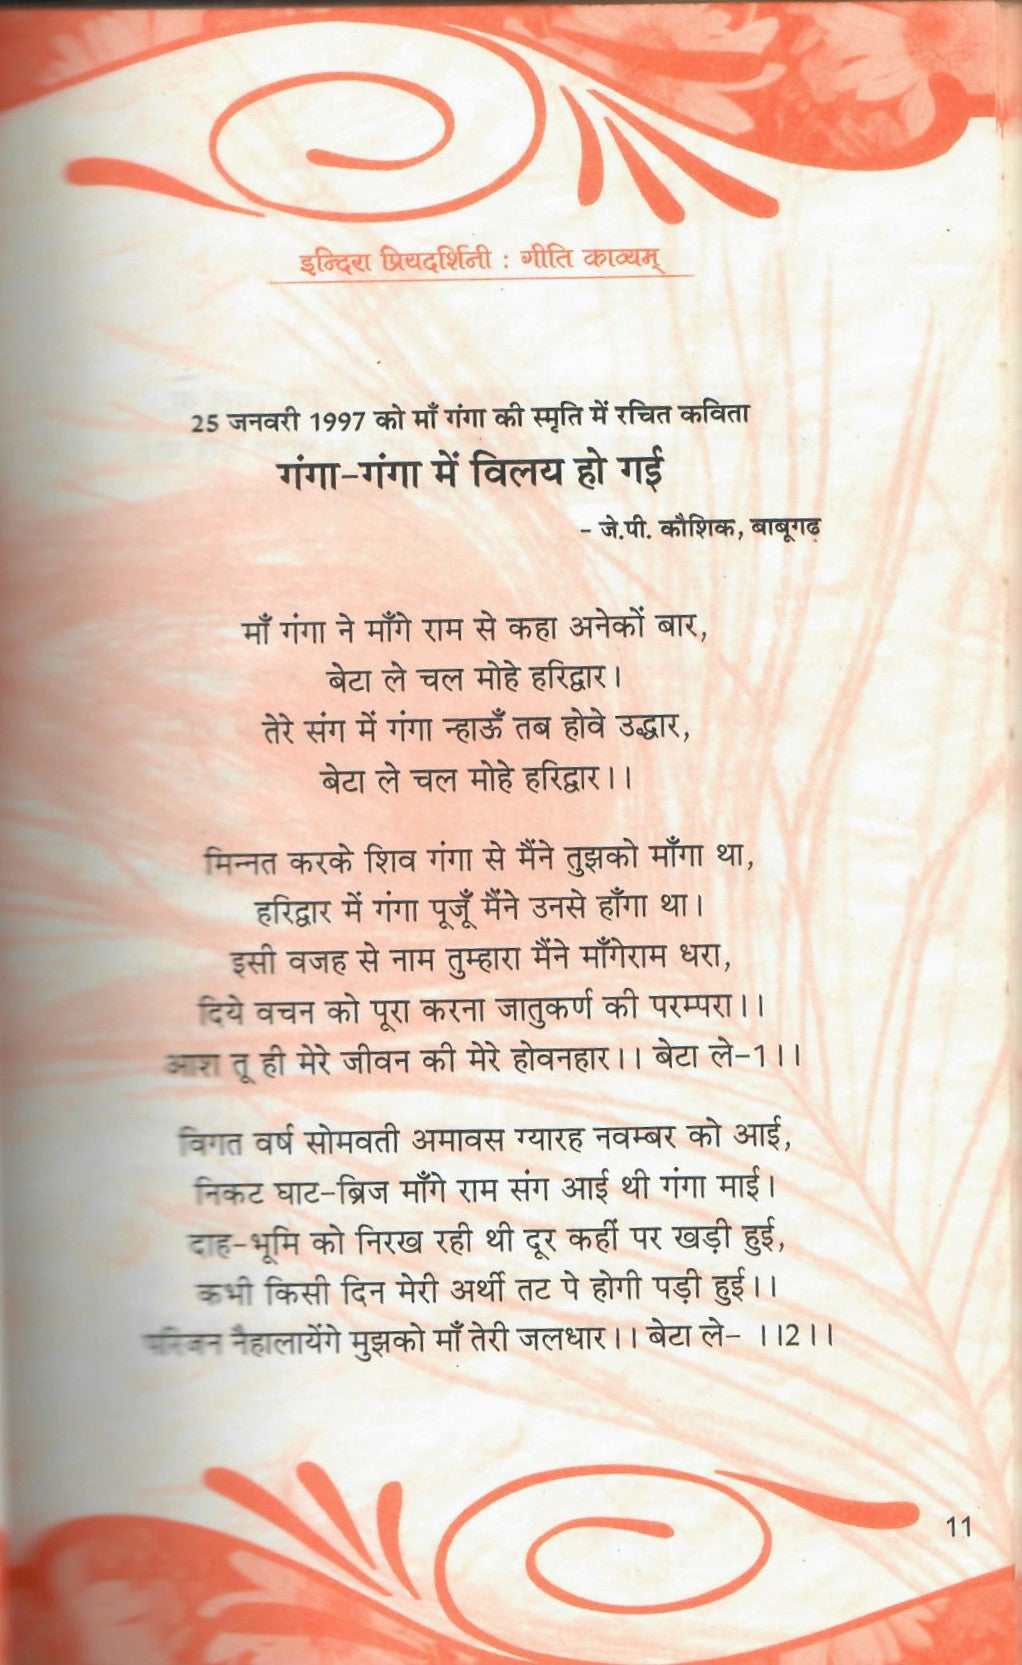 इन्दिरा प्रियदर्शिनी : गीति काव्यम्
25 जनवरी 1997 को माँ गंगा की स्मृति में रचित कविता
गंगा-गंगा में विलय हो गई
- जे.पी. कौशिक, बाबूगढ़
माँ गंगा ने माँगे राम से कहा अनेकों बार,
बेटा ले चल मोहे हरिद्वार।
तेरे संग में गंगा न्हाऊँ तब होवे उद्धार,
बेटा ले चल मोहे हरिद्वार।।
मिन्नत करके शिव गंगा से मैंने तुझको माँगा था,
हरिद्वार में गंगा पूजूँ मैंने उनसे हाँगा था।
इसी वजह से नाम तुम्हारा मैंने माँगेराम धरा,
दिये वचन को पूरा करना जातुकर्ण की परम्परा।।
आश तू ही मेरे जीवन की मेरे होवनहार।। बेटा ले-1।।
विगत वर्ष सोमवती अमावस ग्यारह नवम्बर को आई,
निकट घाट-ब्रिज माँगे राम संग आई थी गंगा माई।
दाह-भूमि को निरख रही थी दूर कहीं पर खड़ी हुई,
कभी किसी दिन मेरी अर्थी तट पे होगी पड़ी हुई।।
परिजन नैहालायेंगे मुझको माँ तेरी जलधार।। बेटा ले- ।।2।।
11